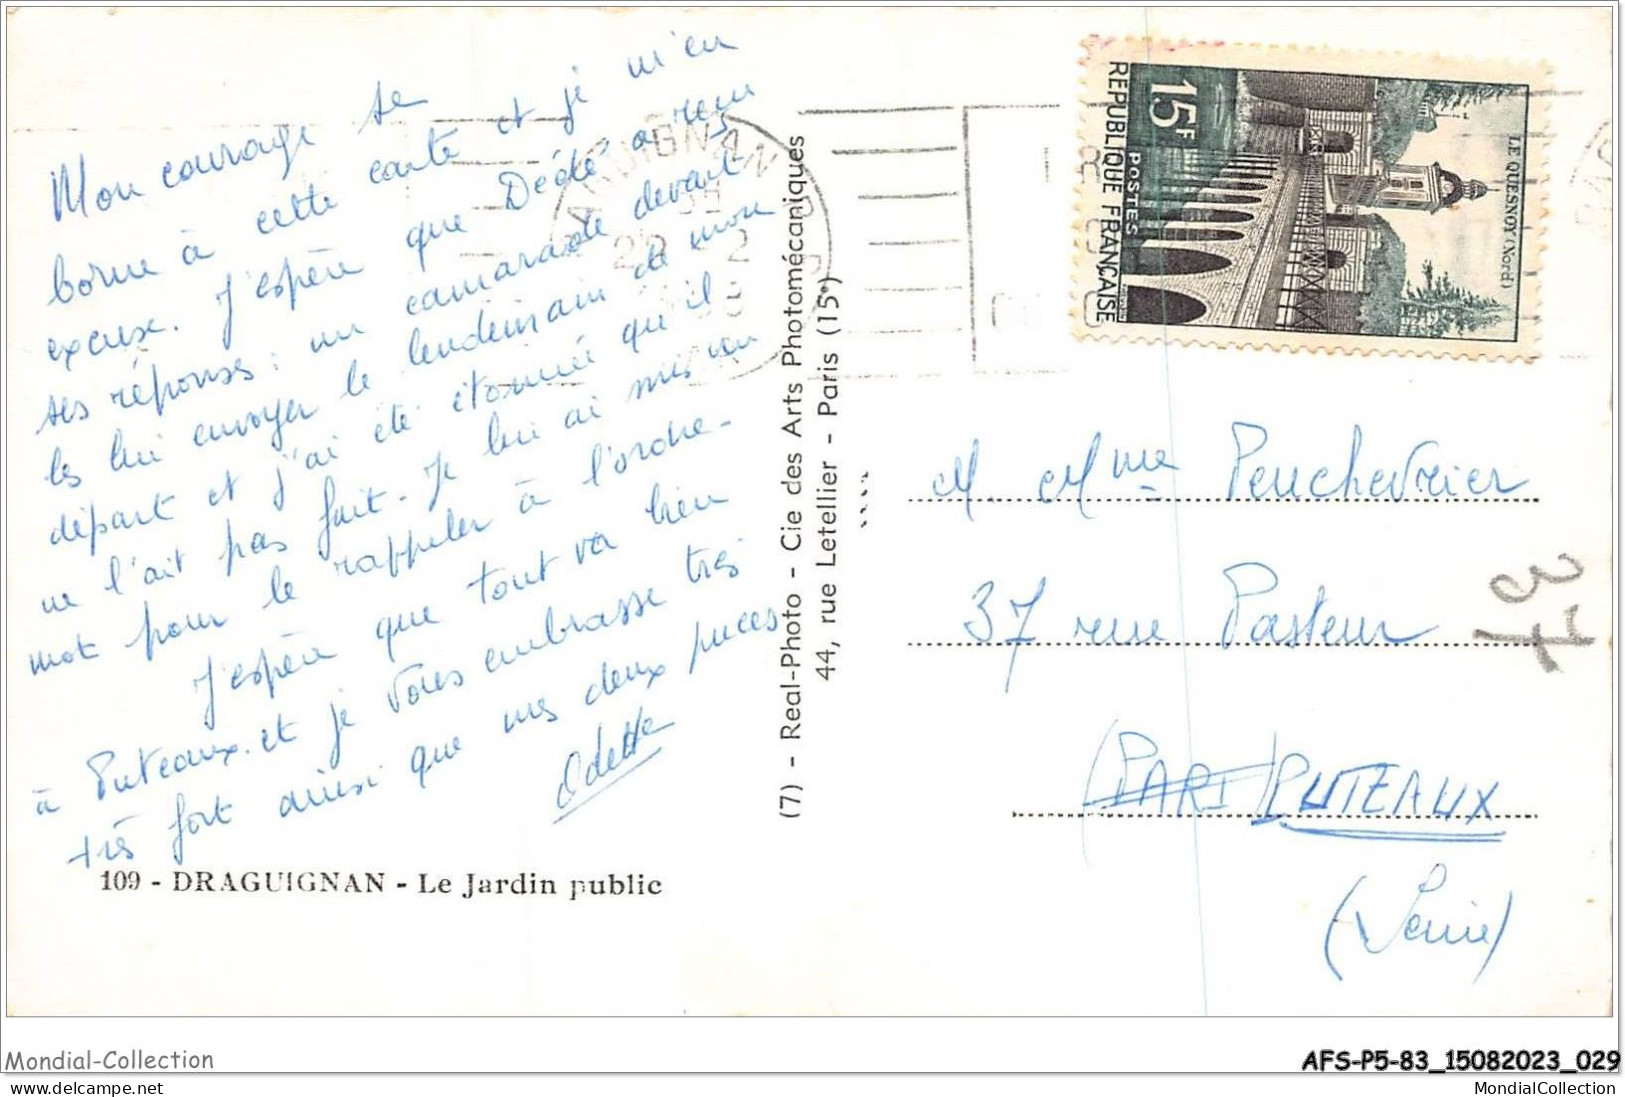 Mon courage se
borne à cette carte et je m'en
excuse. J'espère que Dédé a reçu
ses réponses : un camarade devait
les lui envoyer le lendemain de mon
départ et j'ai été étonnée qu'il
ne l'ait pas fait. Je lui ai mis un
mot pour le rappeler à l'ordre.
J'espère que tout va bien
à Puteaux. et je vous embrasse très
très fort ainsi que mes deux puces
Odette
109 - DRAGUIGNAN - Le Jardin public
(7) - Real-Photo - Cie des Arts Photomécaniques
44, rue Letellier - Paris (15e)
DRAGUIGNAN
RÉPUBLIQUE FRANÇAISE
POSTES
15F
LE QUESNOY (Nord)
M. Mme Peuchevrier
37 rue Pasteur
(PARI) PUTEAUX
(Seine)
37
Mondial-Collection
AFS-P5-83_15082023_029
MondialCollection
MondialCollection